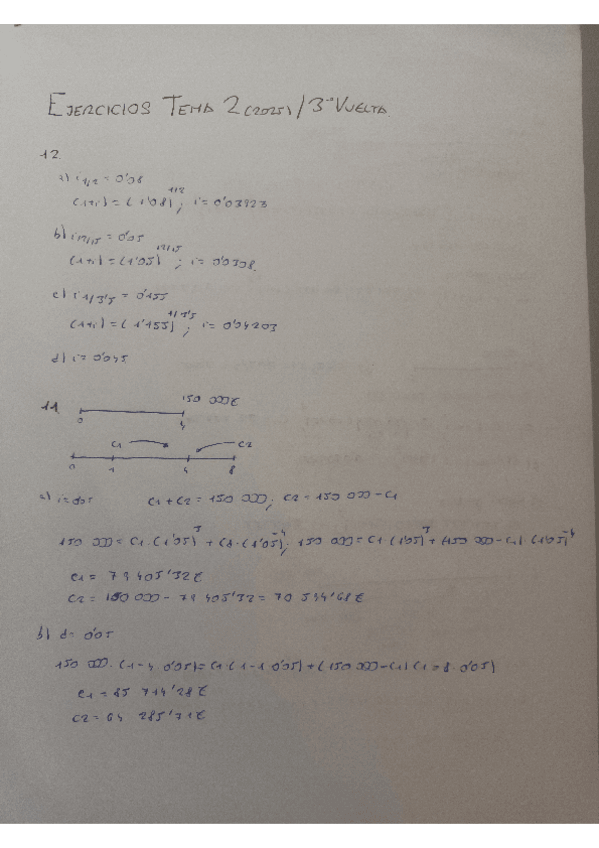 EJERCICIOS TEMA 2 (2025) / 3ª VUELTA
12.
a) i 1/2 = 0'08
(1+i) = (1'08)^1/2 ; i = 0'03923
b) i 17/15 = 0'05
(1+i) = (1'05) ; i =
c) i 1/3'5 = 0'155
(1+i) = (1'155)^1/3'5 ; i = 0'04203
d) i = 0'045
11.
150 000€
0 4
C1 C2
0 1 4 8
a) i = 0'05 C1 + C2 = 150 000; C2 = 150 000 - C1
150 000 = C1 · (1'05)^3 + C2 · (1'05)^-4; 150 000 = C1 (1'05)^3 + (150 000 - C1) (1'05)^-4
C1 = 79 405'32€
C2 = 150 000 - 79 405'32 = 70 594'68€
b) d = 0'05
150 000 · (1-4 · 0'05) = C1 (1-1 · 0'05) + (150 000 - C1) (1-8 · 0'05)
C1 = 85 714'28€
C2 = 64 285'71€